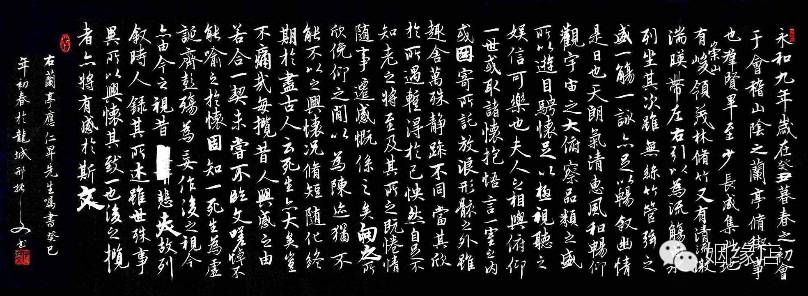 永和九年歲在癸丑暮春之初會
于會稽山陰之蘭亭脩禊事
也羣賢畢至少長咸集此地
有崇山峻領茂林脩竹又有清流激
湍暎帶左右引以為流觴曲水
列坐其次雖無絲竹管弦之
盛一觴一詠亦足以暢敘幽情
是日也天朗氣清惠風和暢仰
觀宇宙之大俯察品類之盛
所以遊目騁懷足以極視聽之
娛信可樂也夫人之相與俯仰
一世或取諸懷抱悟言一室之內
或因寄所託放浪形骸之外雖
趣舍萬殊靜躁不同當其欣
於所遇暫得於己怏然自足不
知老之將至及其所之既惓情
隨事遷感慨係之矣向之所
欣俛仰之閒以為陳迹猶不
能不以之興懷況脩短隨化終
期於盡古人云死生亦大矣豈
不痛哉每攬昔人興感之由
若合一契未嘗不臨文嗟悼不
能喻之於懷固知一死生為虛
誕齊彭殤為妄作後之視今
亦由今之視昔悲夫故列
敘時人錄其所述雖世殊事
異所以興懷其致一也後之攬
者亦將有感於斯文
右蘭亭應仁昇先生寫書癸巳
年初春於龍城邢
姻缘店